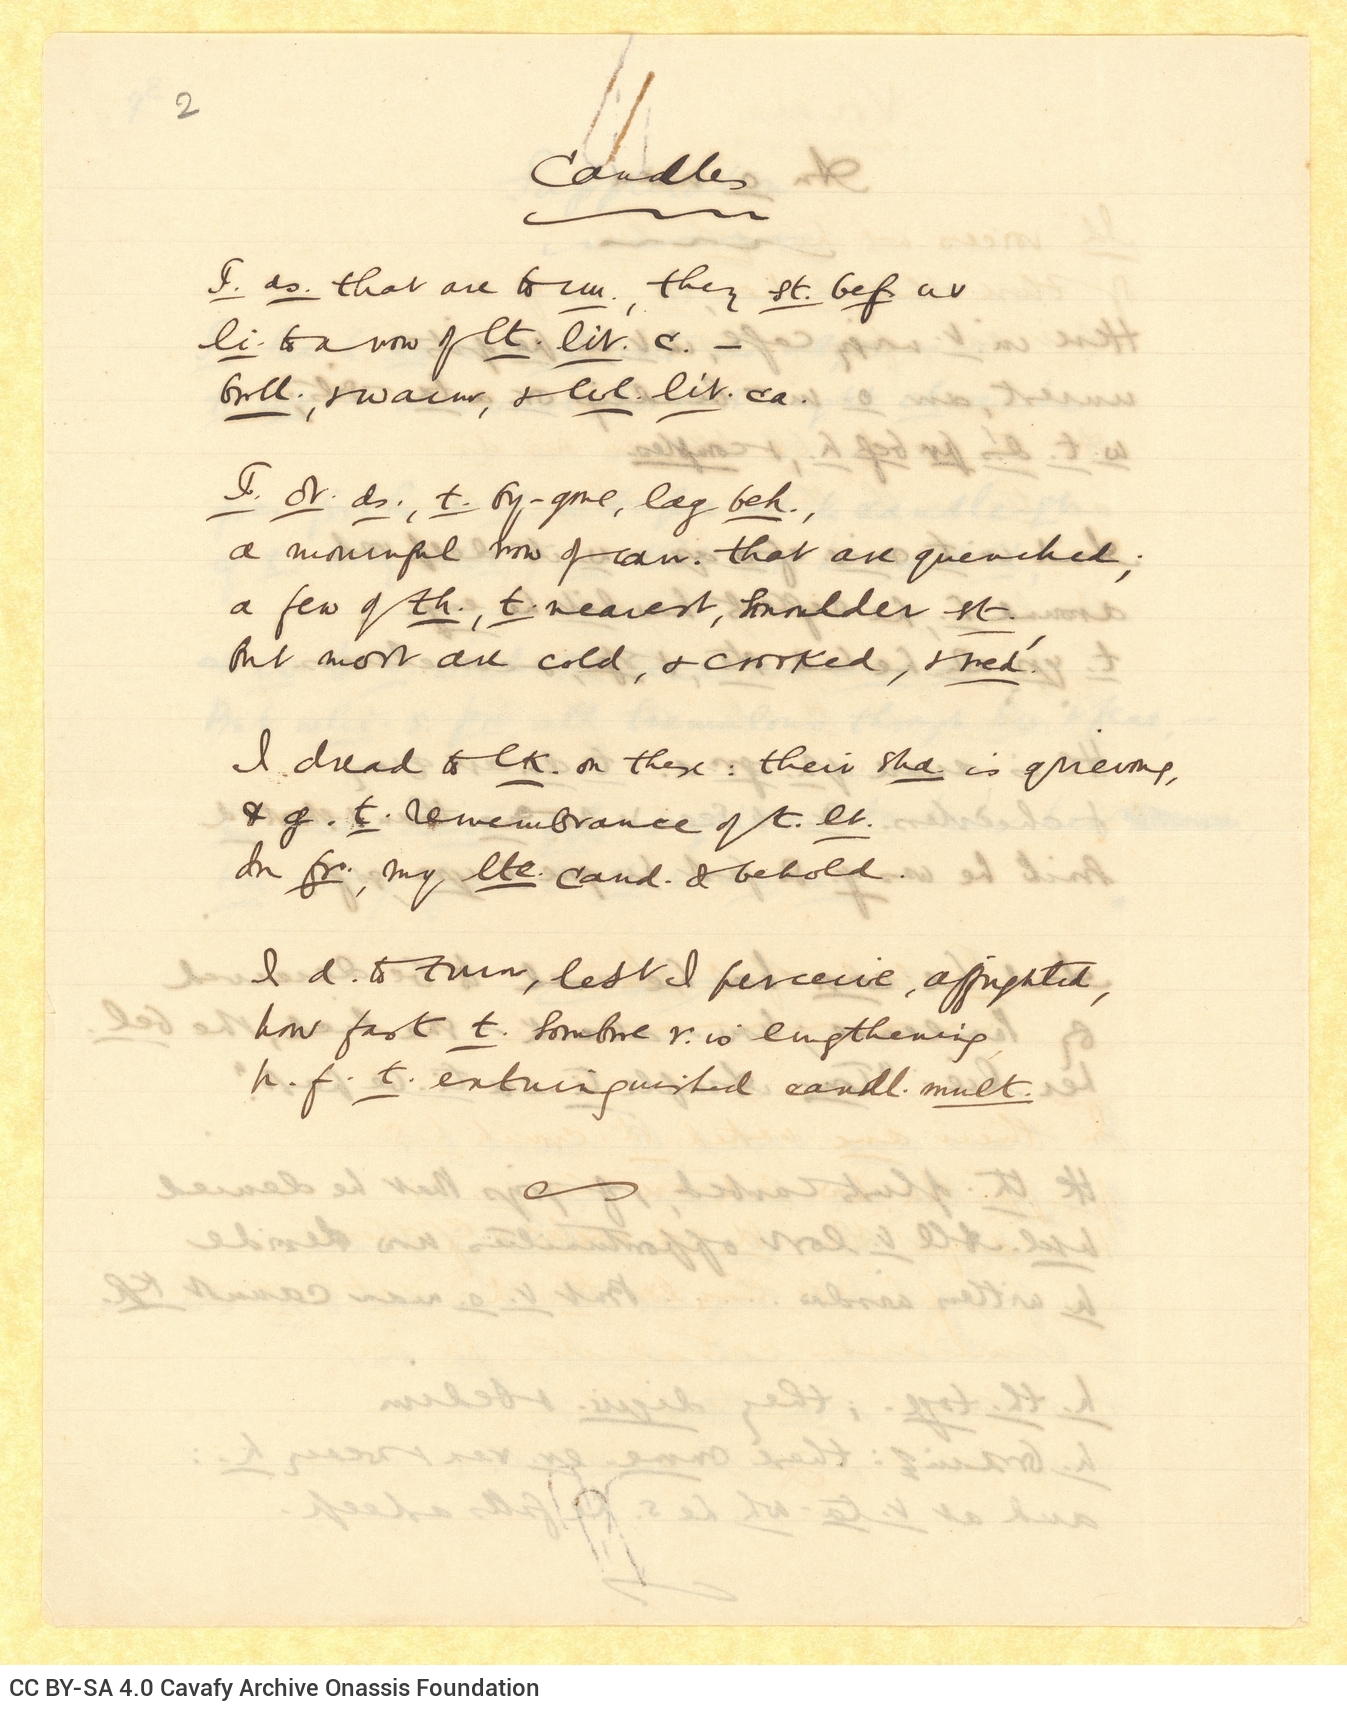 2
Candles
T. ds. that are to cm., they st. bef. us
li. to a row of lt. lit. c. –
brll., & warm, & lvl. lit. ca.
T. ol. ds., t. by-gone, lag beh.,
a mournful row of can. that are quenched;
a few of th., t. nearest, smoulder st.,
But most are cold, & crooked, & red.
I dread to lk. on these: their sha is grieving,
& g. t. remembrance of t. lt.
In fr., my lte. cand. I behold.
I d. to turn, lest I perceive, affrighted,
how fast t. sombre r. is lengthening
h. f. t. extinguished candl. mult.
CC BY-SA 4.0 Cavafy Archive Onassis Foundation